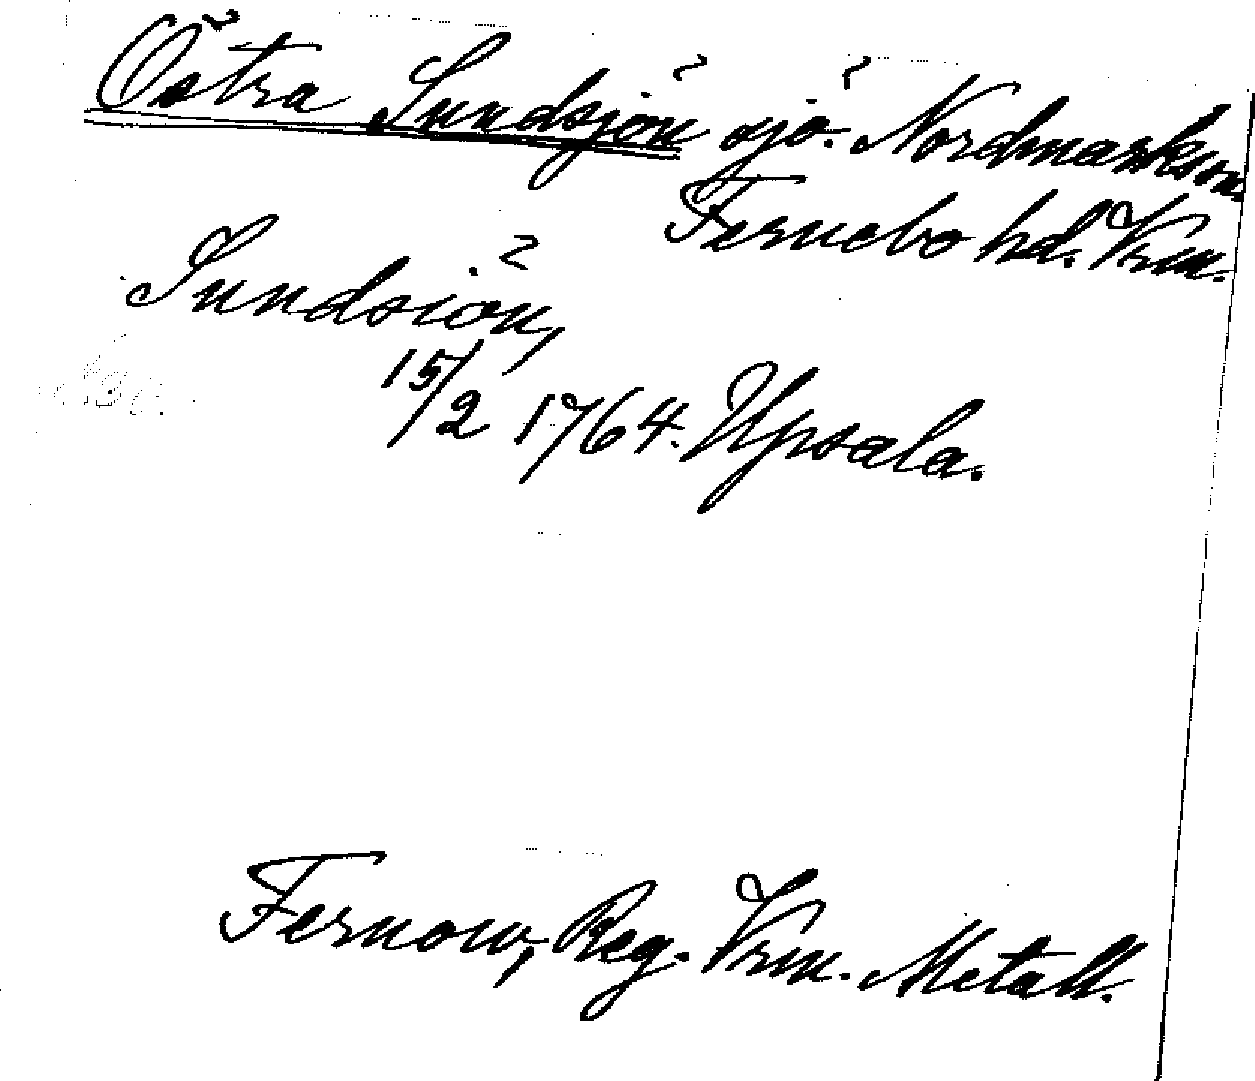 Östra Sundsjön sjö. Nordmarks sn.
Fernebo hd. Vrm.
Sundsiön,
15/2 1764. Upsala.
Fernow, Reg. Vrm. Metall.